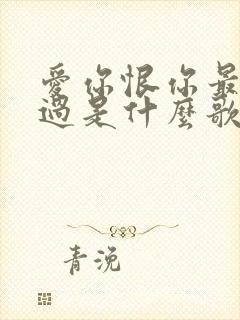 愛你恨你最
過是什麼歌
青浼